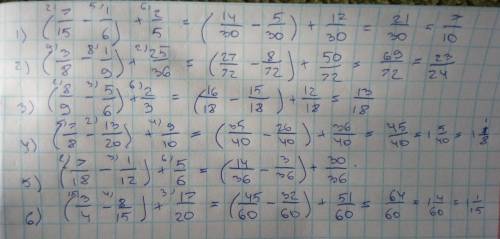 1) (²⁾7/15 - ⁵⁾1/6) + ⁶⁾2/5 = (14/30 - 5/30) + 12/30 = 21/30 = 7/10
2) (⁹⁾3/8 - ⁸⁾1/9) + ²⁾25/36 = (27/72 - 8/72) + 50/72 = 69/72 = 23/24
3) (²⁾8/9 - ³⁾5/6) + ⁶⁾2/3 = (16/18 - 15/18) + 12/18 = 13/18
4) (⁵⁾7/8 - ²⁾13/20) + ⁴⁾9/10 = (35/40 - 26/40) + 36/40 = 45/40 = 1 5/40 = 1 1/8
5) (²⁾7/18 - ³⁾1/12) + ⁶⁾5/6 = (14/36 - 3/36) + 30/36
6) (¹⁵⁾3/4 - ⁴⁾8/15) + ³⁾17/20 = (45/60 - 32/60) + 51/60 = 64/60 = 1 4/60 = 1 1/15